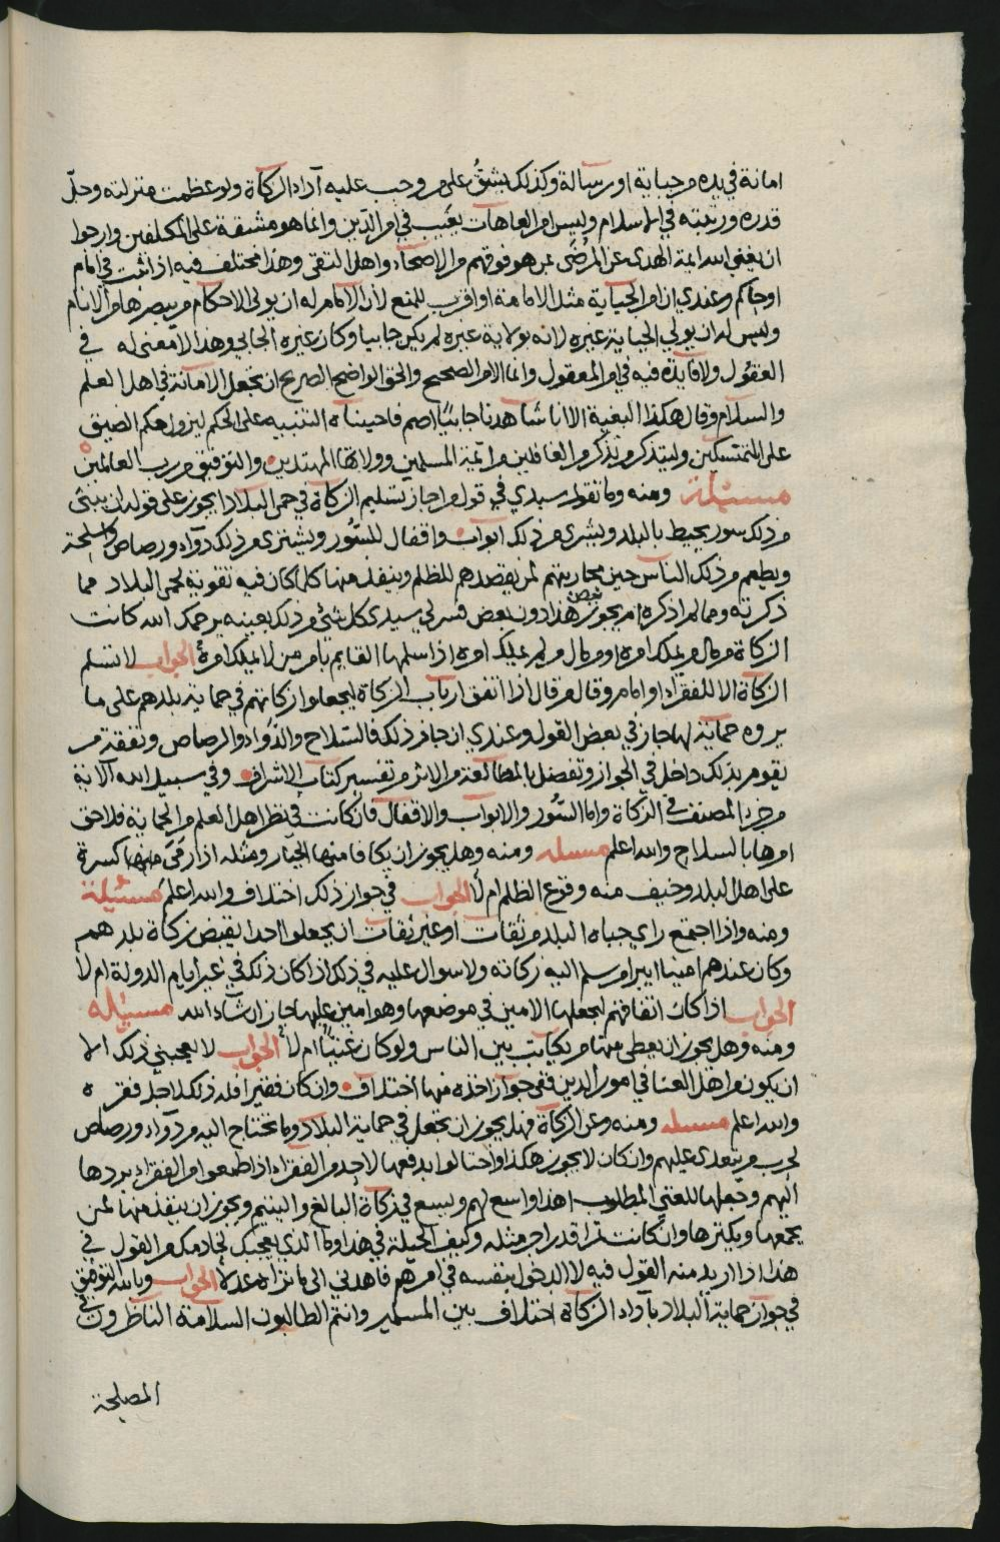 امانة في يده من جباية او رسالة وكذلك يشق على من وجب عليه آداء الزكاة ولو عظمت منزلته وجلّ
قدره ورتبته في الاسلام وليس امر العاهات بعَيب في امر الدّين وانما هو مشقة على المكلفين وارجوا
ان يغني الله ايمة الهدى عن المرضَى بمن هو فوقهم من الاصحآء واهل التقى وهذا مختلف فيه اذا نشت في امام
او حاكم وعندي ان امر الجباية مثل الامامة او اقرب للمنع لان الامام له ان يولى الاحكام من يبصرها من الانام
وليس له ان يولي الجباية غيره لانه بولاية غيره لم يكن جابيا وكان غيره الجابي وهذا لا معنى له في
العقُول ولا فايدة فيه في امر المعقول وانما الامر الصحيح والحق الواضح الصريح ان تجعل الامانة في اهل العلم
والسلام وقال هكذا البغية الا انا شاهدنا جابيًا اصم فاحببناه التنبيه على الحكم ليزول حكم الضيق
على المتمسكين وليتذكر من يذكر من الغافلين من ايمة المسلمين وولاتها المهتدين والتوفيق من رب العالمين
مسئلة ومنه وما تقول سيدي في قول من اجاز تسليم الزكاة في حمى البلاد ايجوز على قوله ان يبنى
من ذلك سور يحيط بالبلد ويشرى من ذلك ابواب واقفال للسّور ويشترى من ذلك دوآء ورصاص واسلحة
ويطعم من ذلك الناس حين محاربتهم لمن يقصدهم للظلم وينفذ منها كلما كان فيه تقوية لحمى البلاد مما
ذكرته ومما لم اذكره ام يجوز بعض هذا دون بعض فسر لي سيدي كل شئ من ذلك بعينه يرحمك الله كانت
الزكاة من مال من يملك امره او من مال من لم يملك امره اذا سلمها القايم بامر من لا يملك امرهُ الجواب لا تسلم
الزكاة الا للفقرآء او امام وقال من قال اذا اتفق ارباب الزكاة ليجعلوا زكاتهم في حماية بلدهم على ما
يروه حماية لها جاز في بعض القول وعندي ان جاز ذلك فالسّلاح والدّوآء والرصاص ونفقة من
يقوم بذلك داخل في الجواز وتفضل بالمطالعة من الاثر من تفسير كتاب الاشراف وفي سبيل الله الآية
من جزء المصنف في الزكاة واما السُّور والابواب والاقفال فان كانت في نظر اهل العلم من الحماية فلاحق
امرها بالسلاح والله اعلم مسئله ومنه وهل يجوز ان يكافا منها الجبار ومثله اذا رقى منها كسرة
على اهل البلد وخيف منه وقوع الظلم ام لا الجواب في جواز ذلك اختلاف والله اعلم مسئيلة
ومنه واذا اجتمع راي جباه البلد من ثقات او غير ثقات ان يجعلوا احدا يقبض زكاة بلدهم
وكان عندهم امينا ايبرا من سلم اليه زكاته ولا سوال عليه في ذلك اذا كان ذلك في غير ايام الدولة ام لا
الجواب اذا كان اتفاقهم ليجعلها الامين في موضعها وهو امين عليها جاز ان شآء الله مسئيله
ومنه وهل يجوز ان يعطى منها من يكاتب بين الناس ولو كان غنيًّا ام لا الجواب لا يعجبني ذلك الا
ان يكون من اهل العنا في امور الدين ففي جواز اخذه منها اختلاف وان كان فقيرا فله ذلك لاجل فقره
والله اعلم مسئله ومنه وعن الزكاة فهل يجوز ان تجعل في حماية البلاد وما تحتاج اليه من دوآء ورصاص
لحرب من يتعدى عليهم وان كان لا يجوز هكذا واحتالوا بدفعها لاحد من الفقرآء اذا طمعوا من الفقرآء بردها
اليهم وجعلها للمعنى المطلوب اهذا واسع لهم ويسع في زكاة البالغ واليتيم ويجوز ان ينفذ منها لمن
يجمعها ويكنزها وان كانت تمرا قدر اجر مثله وكيف الحيلة في هذا وما الذي يعجبك لخادمك من القول في
هذا اذا اريد منه القول فيه لا الدخول بنفسه في امرهم فاهدني الى ما تراه عدلا الجواب وبالله التوفيق
في جواز حماية البلاد بآداء الزكاة اختلاف بين المسلمين وانتم الطالبون السلامة الناظرون في
المصلحة